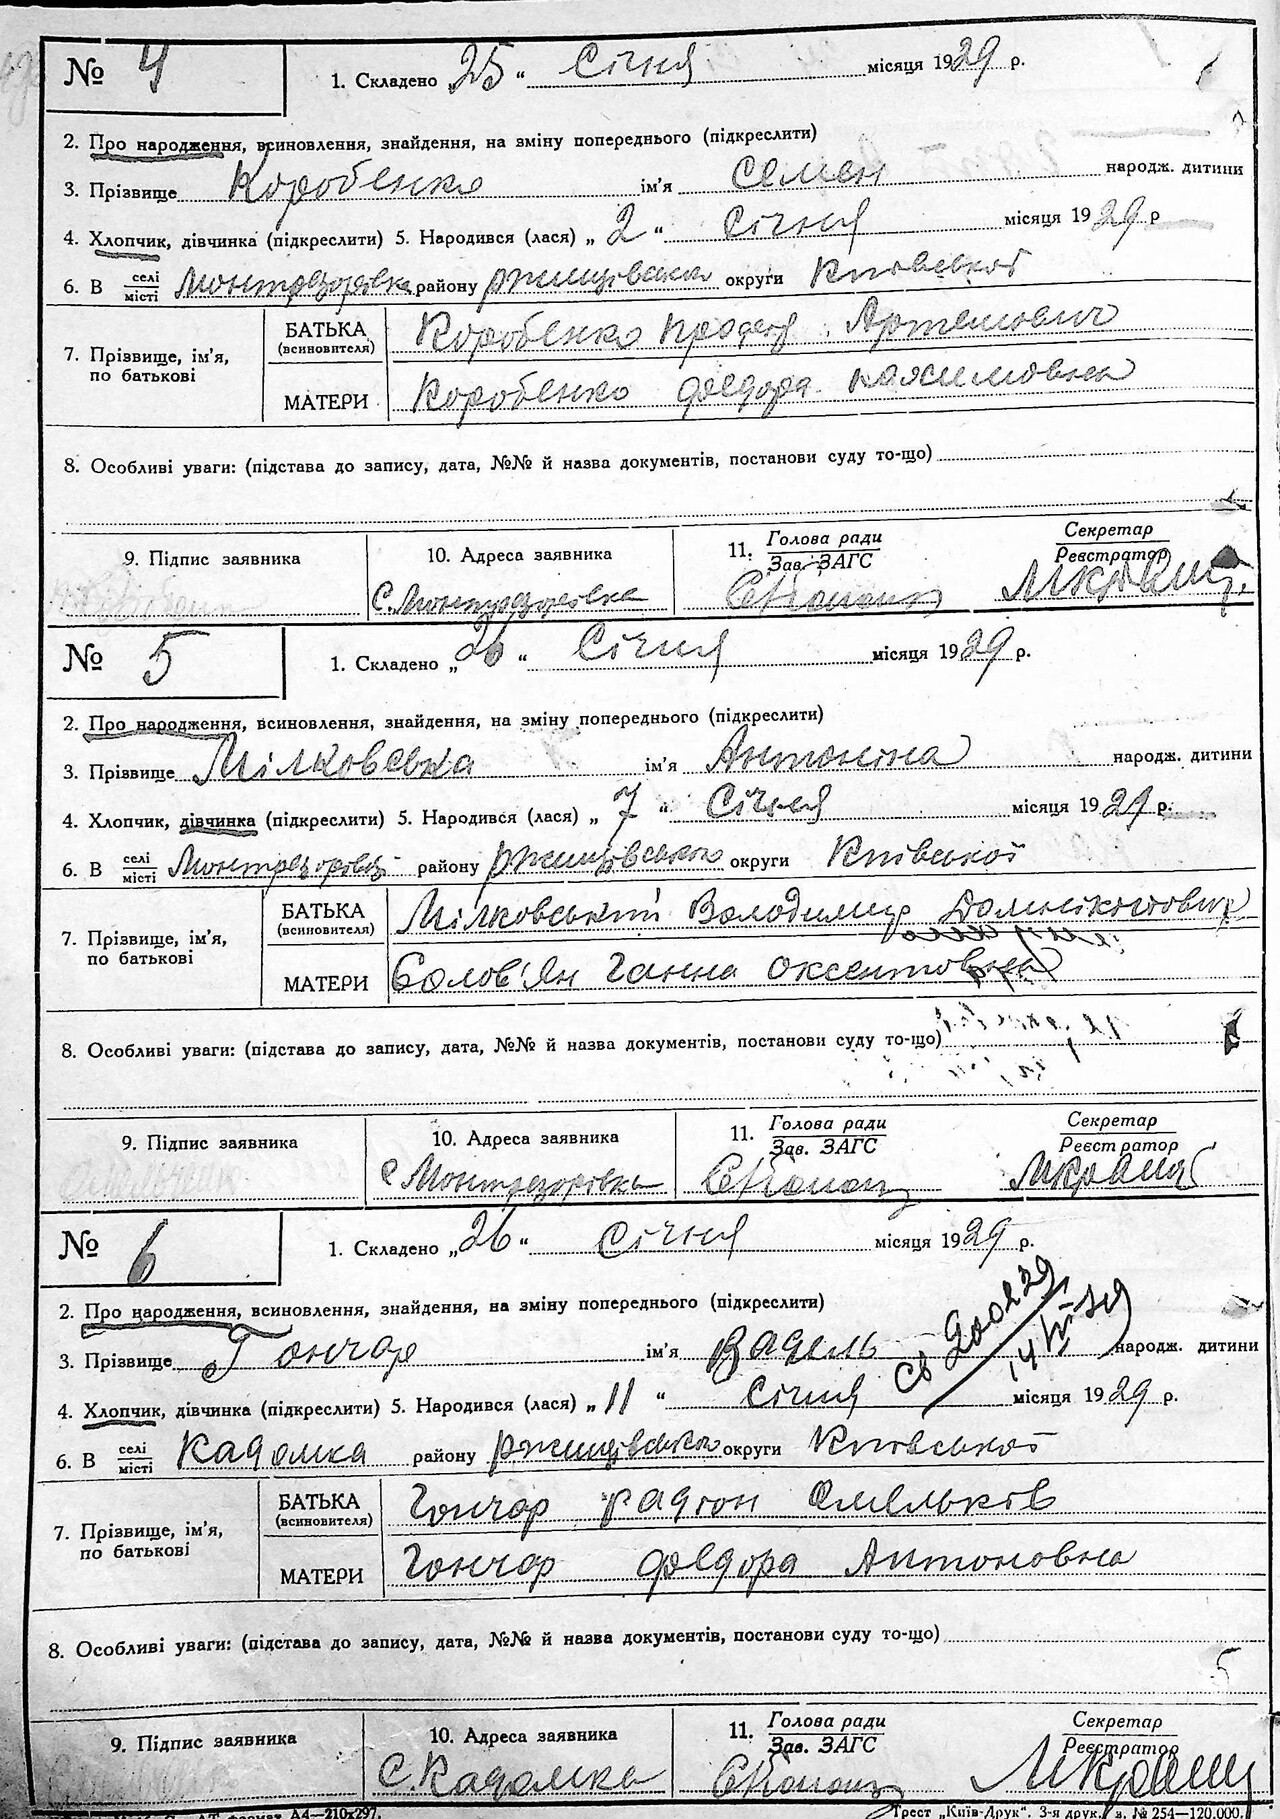 № 4 1. Складено „25“ Січня місяця 1929 р.
2. Про народження, всиновлення, знайдення, на зміну попереднього (підкреслити)
3. Прізвище Коробенко ім'я Семен народж. дитини
4. Хлопчик, дівчинка (підкреслити) 5. Народився (лася) „2“ Січня місяця 1929 р
6. В селі місті Монтрезорівка району Ржищівського округи Київської
7. Прізвище, ім'я, по батькові БАТЬКА (всиновителя) Коробенко Артемович
МАТЕРИ Коробенко Федора
8. Особливі уваги: (підстава до запису, дата, №№ й назва документів, постанови суду то-що)
9. Підпис заявника 10. Адреса заявника 11. Голова ради Зав. ЗАГС Секретар Реєстратор
С. Монтрезорівка
№ 5 1. Складено „26“ Січня місяця 1929 р.
2. Про народження, всиновлення, знайдення, на зміну попереднього (підкреслити)
3. Прізвище Мілковська ім'я Антоніна народж. дитини
4. Хлопчик, дівчинка (підкреслити) 5. Народився (лася) „7“ Січня місяця 1929 р.
6. В селі місті Монтрезорівці району Ржищівського округи Київської
7. Прізвище, ім'я, по батькові БАТЬКА (всиновителя) Мілковський Володимир
МАТЕРИ Солов'ян Ганна Оксентовна
8. Особливі уваги: (підстава до запису, дата, №№ й назва документів, постанови суду то-що)
9. Підпис заявника 10. Адреса заявника 11. Голова ради Зав. ЗАГС Секретар Реєстратор
с Монтрезорівка
№ 6 1. Складено „26“ Січня місяця 1929 р.
2. Про народження, всиновлення, знайдення, на зміну попереднього (підкреслити)
3. Прізвище Гончар ім'я Вадель народж. дитини
4. Хлопчик, дівчинка (підкреслити) 5. Народився (лася) „11“ Січня місяця 1929 р.
6. В селі місті Кадомка району Ржищівського округи Київської
7. Прізвище, ім'я, по батькові БАТЬКА (всиновителя) Гончар Радіон Омельков
МАТЕРИ Гончар Федора Антоновна
8. Особливі уваги: (підстава до запису, дата, №№ й назва документів, постанови суду то-що)
5
9. Підпис заявника 10. Адреса заявника 11. Голова ради Зав. ЗАГС Секретар Реєстратор
С. Кадомка
формат А4—210х297. Трест „Київ-Друк“. 3-я друк. з. № 254—120.000.